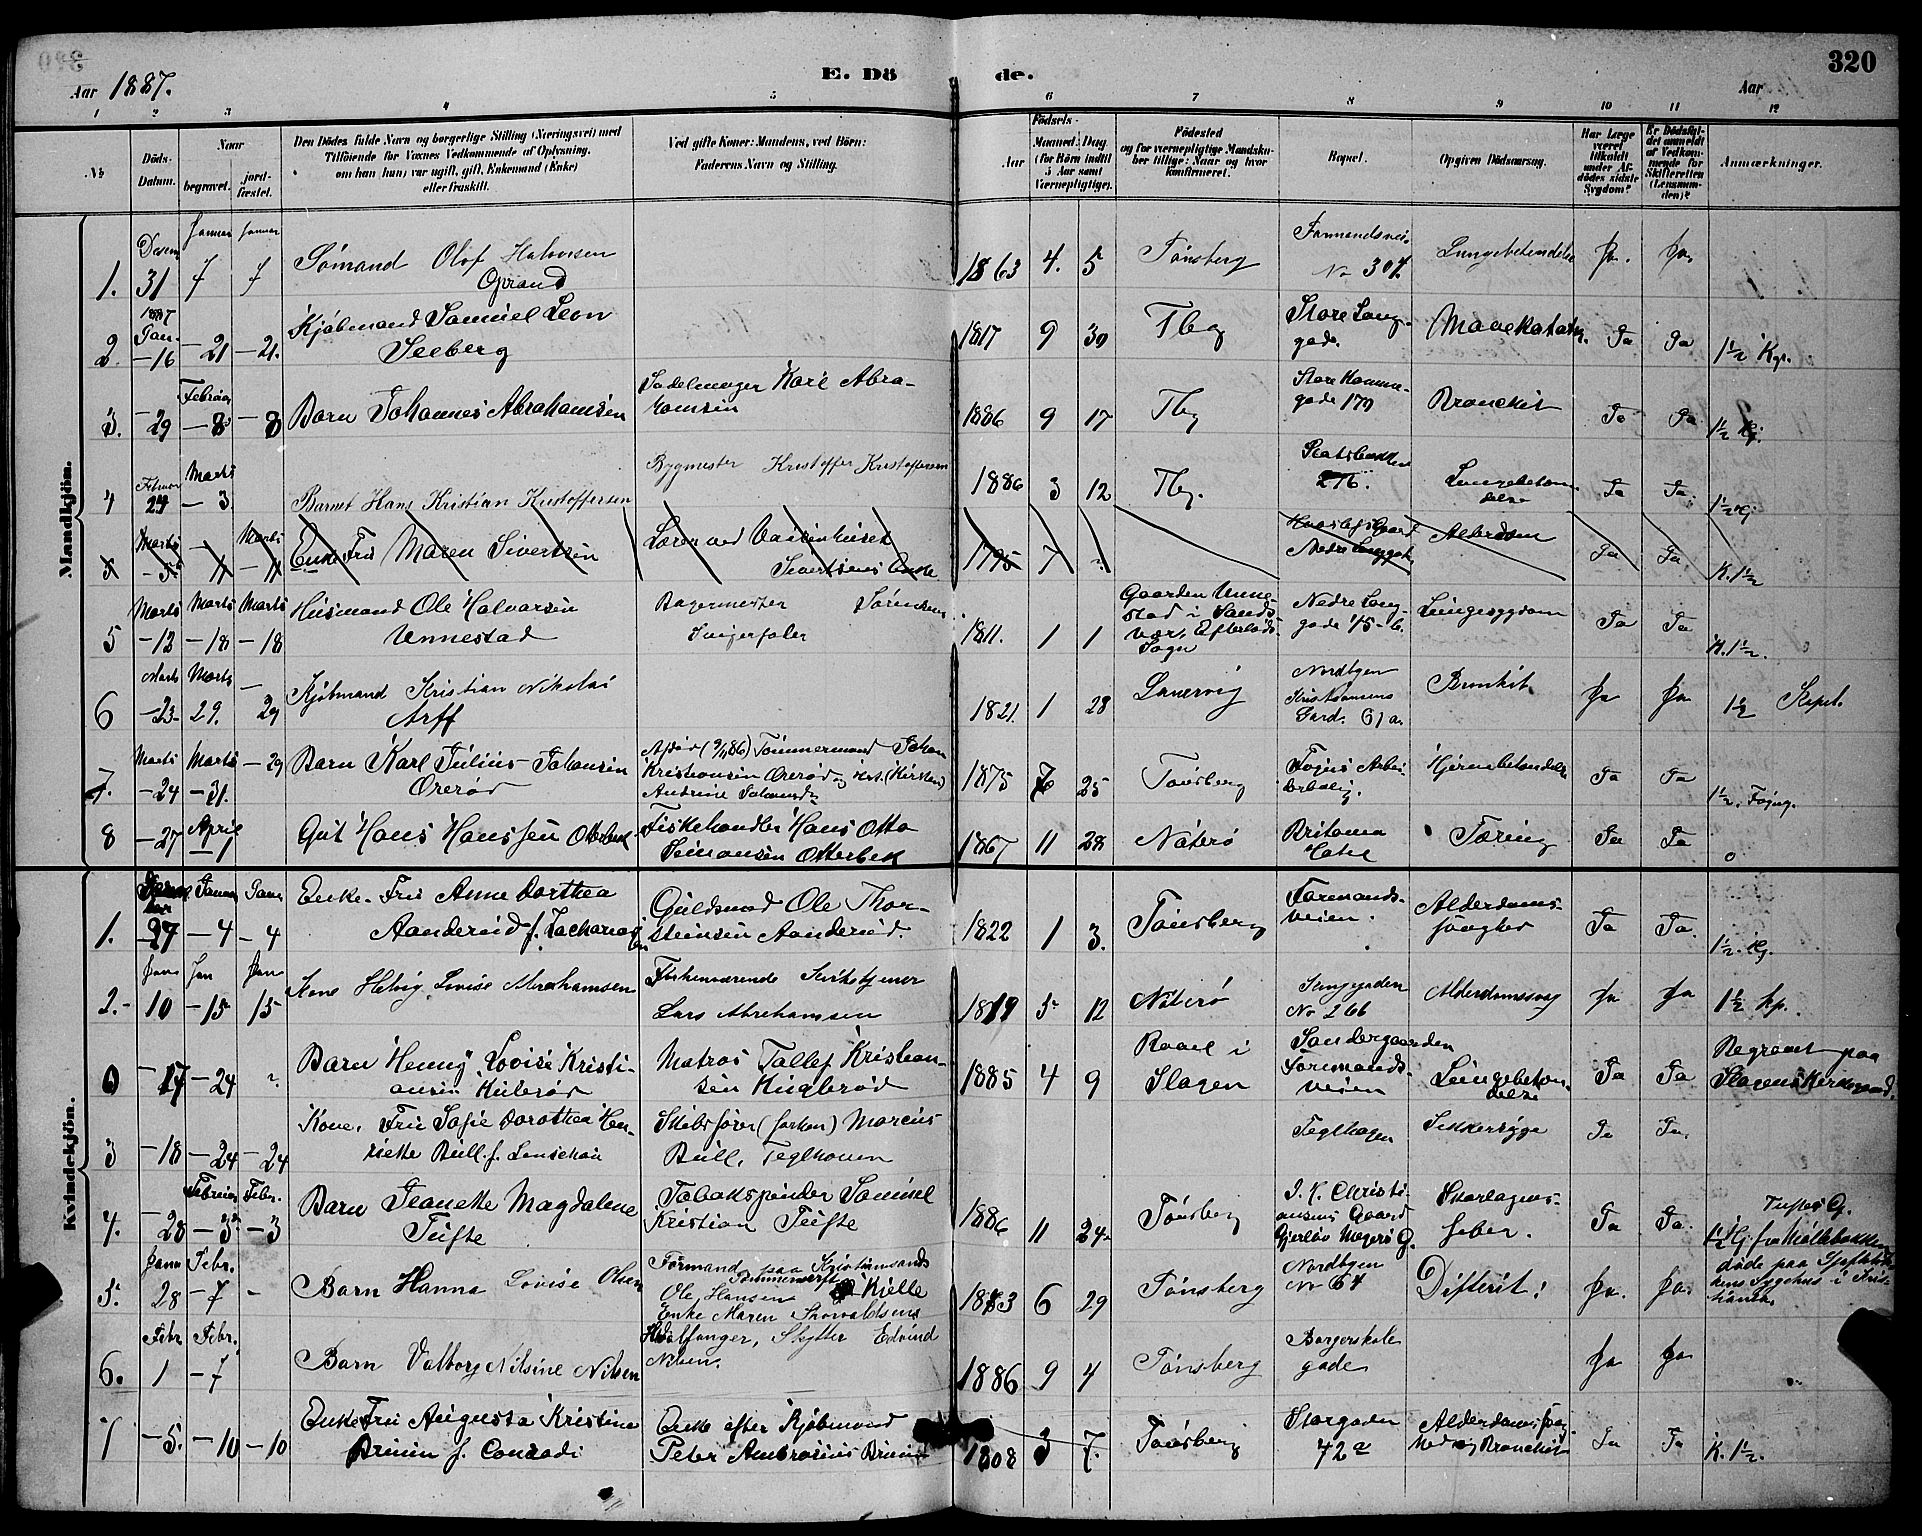 320
Aar 1887.
E. Dö
de.
Aar
1 2 3 4 5 6 7 8 9 10 11 12
No
Döds-
Datum.
Naar
begravet.
jord-
fæstet.
Den Dödes fulde Navn og borgerlige Stilling (Næringsvei) med
Tilföiende for Voxnes Vedkommende af Oplysning,
om han (hun) var ugift, gift, Enkemand (Enke)
eller fraskilt.
Ved gifte Koner: Mandens, ved Börn:
Faderens Navn og Stilling.
Födsels-
Aar
Maaned Dag
(for Börn indtil
5 Aar samt
Værnepligtige).
Födested
og for værnepligtige Mandsku-
ber tillige: Naar og hvor
konfirmeret.
Bopæl.
Opgiven Dödsaarsag.
Har Læge
været
tilkaldt
under Af-
dödes sidste
Sygdom?
Er Dödsfal-
det anmeldt
af Vedkom-
mende for
Skifteretten
(Lensman-
den)?
Anmærkninger.
Mandkjön.
1. Desem 31 Januar 7 Januar 7 Sømand Olaf Halvorsen
Oprand
1863 4. 5 Tønsberg Farmandsvei.
No 307 Lungebetændelse Ja. Ja.
2. 1887 Jan. -16 -21 -21. Kjøbmand Samuel Leon
Seeberg
1817 9 30 Tbg Store Lang-
gade. Mavekatarr. Ja Ja 1½ Kg.
3. -29 Februar -8 -8 Barn Johannes Abrahamsen
Sadelmager Karl Abra-
hamsen
1886 9 17 Tbg Store
gade 170 Bronchit Ja Ja 1½ Kg.
4 Februar 24 Marts -3 Barnet Hans Kristian Kristoffersen
Bygmester Kristoffer Kristoffersen
1886 3 12 Tbg.
276. Lungebetæn-
delse Ja Ja. 1½ Kg
5 Marts -5 -11 Marts -11 Enke Fru Maren Sivertsen
Lærer ved Vaisenhuset
Sivertsens Enke
1795 7
Nedre Langgade Alderdom Ja Ja. K. 1½
5 Marts -12 Marts -18 Marts -18 Husmand Ole Halvorsen
Unnestad
Bagermester Sörensens
Svigerfader
1811. 1 1 Gaarden Unne-
stad i Sands-
vær, Efterløds
Sogn Nedre Lang-
gade 15-b. Lungesygdom Ja Ja K. 1½.
6 Marts -23- Marts 29. - 29 Kjøbmand Kristian Nikolai
Arff
1821. 1 28 Laurvig Nordbyen
Kristiansens
Gard. 61a. Bronkit Ja Ja 1½ Kapel.
7. Marts -24 Marts -31. -29 Barn Karl Julius Johansen
Orerød
Afdød (9/11 86) Tömmermand Johan
Kristiansen Orerød og
Andrine
1875 7 25 Tønsberg Foyns Arbei-
derbolig. Hjernebetændelse Ja Ja 1½. Fojng.
8 -27 April -1 Gut Hans Hanssen Otterbek
Fiskehandler Hans Otto
Simonsen Otterbek
1867 11 28 Nøterø Britania
Hotel Tæring Ja Ja 0
Kvindekjön.
1. -27 Januar -4 Janua -4 Enke-Fru Anne Dorthea
Aanderud f. Zachariassen
Guldsmed Ole Thor-
steinsen Aanderud.
1822 1 3. Tønsberg Farmands-
veien. Alderdoms-
svaghed Ja Ja. 1½. Kg.
2.- Jan 10 Jan -15 Jan 15 Kone Helvig Lovise Abrahamsen
Forhenværende Kirketjener
Lars Abrahamsen
1819 5 12 Nøterø
No 266 Alderdomssvag Ja Ja 1½ kp.
0 -17 -24 Barn Henny Lovise Kristi-
ansen
Matros Tallef Kristian-
sen
1885 4 9 Raael i
Slagen Sandergaarden
Farmands-
veien Lungebetæn-
delse Ja Ja Begravet paa
Slagens Kirkegaard.
3 -18 -24 -24 Kone, Fru Sofie Dorothea Hen-
riette Bull f. Lensehau
Skibsfører (forhen) Marcus
Bull, Teglhaven
Teglhagen Sukkersyge Ja Ja.
4. -28 Februar -3 Febr. -3 Barn Jeanette Magdalene
Tufte
Tobakspinder Samuel
Kristian Tufte
1886 11 24 Tønsberg J. K. Christi-
ansens Gaard
Skarlagens-
feber. Ja Ja. Tuftes G.
1½ Kg. fra Møllebakken
5. Janu 28 Febr. -7 - Barn Hanna Lovise Olsen
Formand paa Kristiansands
Ole Hansen Kjelle
Enke Maren Thorvaldsens
1883 6 29 Tønsberg Nordbyen
No 64 Difterit. Ja. Ja. døde paa
Sygehus i Kristi-
ania.
6. Febr 1 Febr. -7 Barn Valborg Nilsine Nilsen
Hvalfanger, Skytter Edvind
Nilsen.
1886 9 4 Tønsberg Borgerskole
gade Ja Ja
7 -5. -10 -10 Enke Fru Augusta Kristine
Bruun f. Conradi
Enke efter Kjøbmand
Peter Ambrosius Bruun
1808 3 7. Tønsberg Storgaden
42a Alderdomssvag-
hed og Bronchit Ja Ja K. 1½.